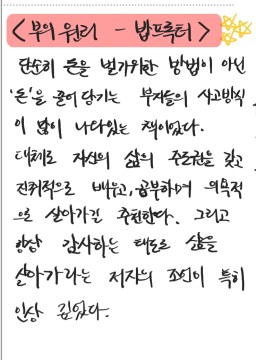 <부의 원리 - 밥프록터>
단순히 돈을 벌기위한 방법이 아닌
'돈'을 끌어당기는 부자들의 사고방식
이 많이 나타있는 책이었다.
대체로 자신의 삶의 주도권을 갖고
진취적으로 배우고, 공부하며 의욕적
으로 살아가길 추천한다. 그리고
항상 감사하는 태도로 삶을
살아가라는 저자의 조언이 특히
인상 깊었다.